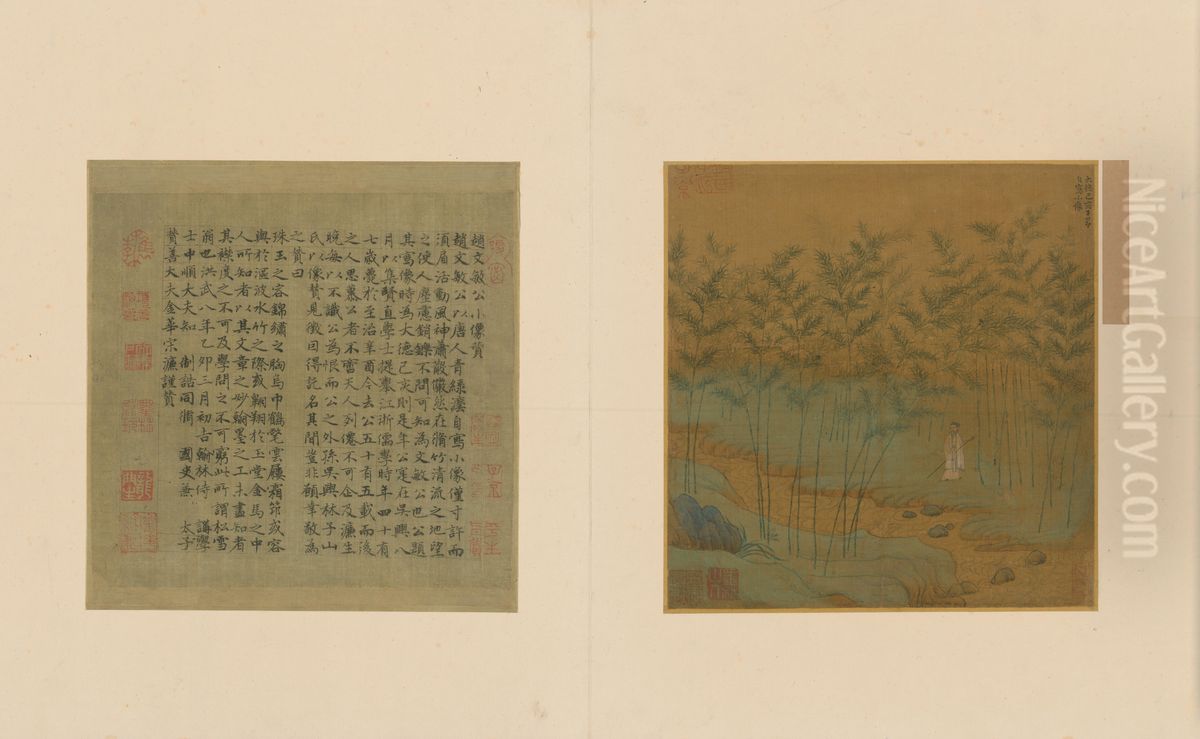 大德己亥子昂
自寫小像
趙文敏公小像贊
趙文敏公以唐人青綠灋自寫小像僅寸許而
須眉活動風神蕭散儼然在脩竹清流之地望
之使人塵慮銷鑠不問可知為文敏公也公題
其寫像時為大德己亥則是年公寔在吳興八
月以集賢直學士提舉江浙儒學時年四十有
七歲薨於至治辛酉今去公五十有五載而後
之人思慕公者不啻天人列僊不可企及濂生
晚每以不識公為恨而公之外孫吳興林子山
氏以像贊見徵因得託名其間豈非願幸敬為
之贊曰
珠玉之容錦繡之胸烏巾鶴氅雲屨霜筇或容
與於漚波水竹之際或翱翔於玉堂金馬之中
人所知者以其文章之妙翰墨之工未盡知者
其襟度之不可及學問之不可窮此所謂松雪
翁也洪武八年乙卯三月初吉翰林侍講學
士中順大夫知制誥同脩國史兼太子
贊善大夫金華宋濂謹贊
NiceArtGallery.com